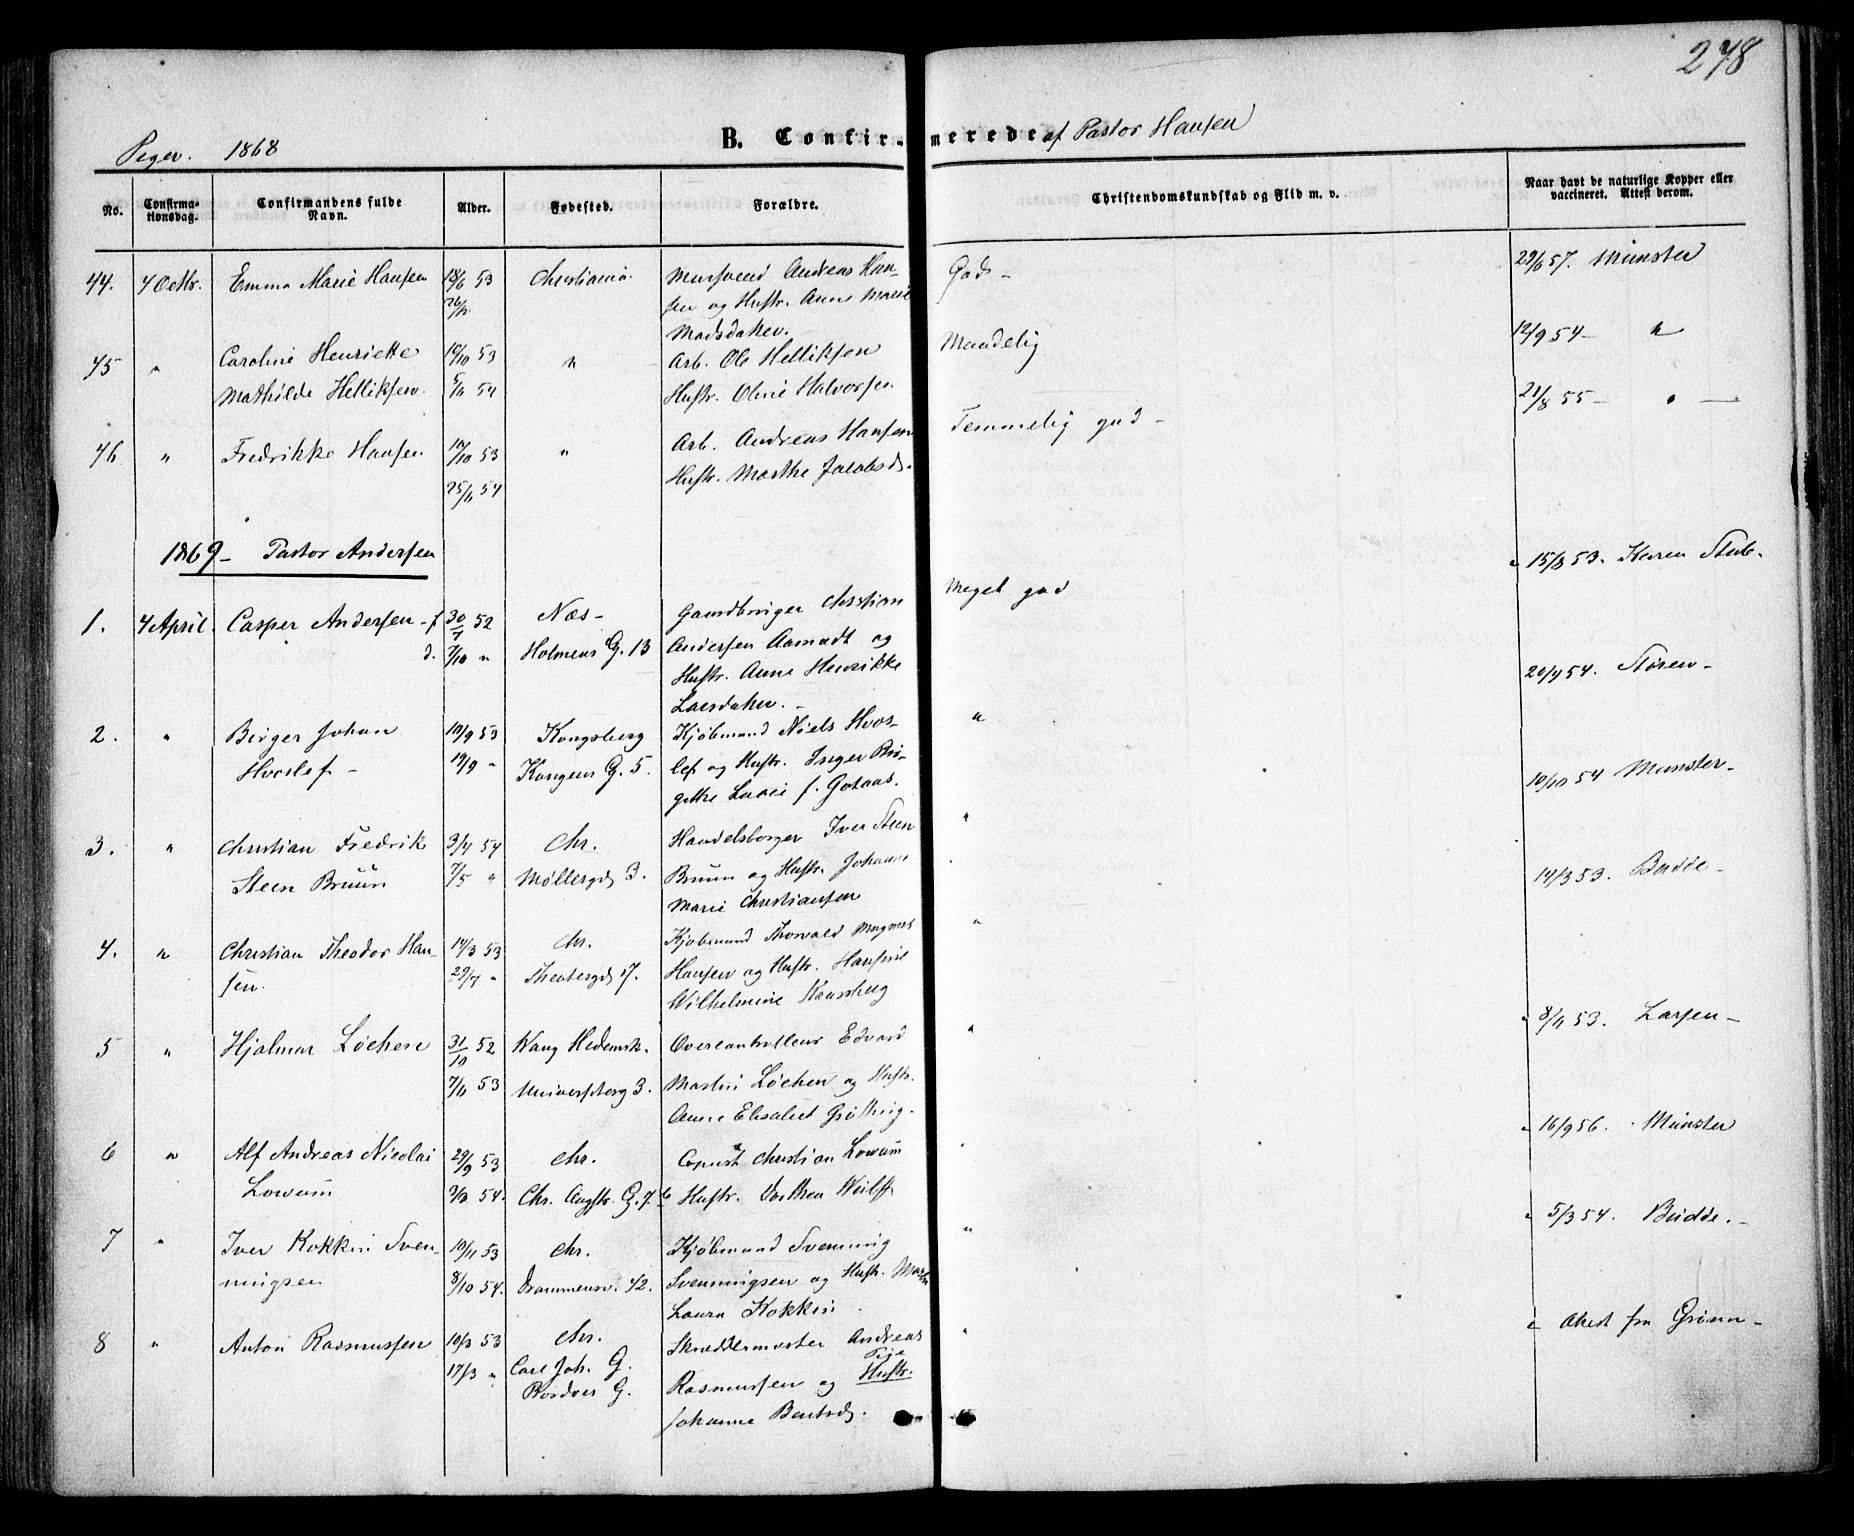 278
Piger. 1868
B. Confir-merede af Pastor Hansen
No.
Confirma-
tionsdag.
Confirmandens fulde
Navn.
Alder.
Fødested.
Forældre.
Christendomskundskab og Flid m. v.
Naar havt de naturlige Kopper eller
vaccineret. Attest derom.
44. 4 Octbr. Emma Marie Hansen 18/6 53 Christiania Mursvend Andreas Han- God - 29/6 57. Münster
sen og Hustr. Anne Marie
Madsdatter.
45 " Caroline Henriette 10/10 53 " Arb. Ole Helliksen Maadelig 12/9 54 - "
Mathilde Helliksen. 54 Hustr. Oline Halvorsen
46 " Fredrikke Hansen 17/10 53 " Arb. Andreas Hansen Temmelig god - 21/8 55 - "
25/6 54 Hustr. Marthe Jacobsd.
1869 - Pastor Andersen
1. 4 April. Casper Andersen - f 30/7 52 Næs - Gaardbruger Christian Meget god 15/8 53. Karen Stub-
d. 7/10 " Holmens G. 13 Andersen Aamodt og
Hustr. Anne Henrikke
Larsdatter. -
2. " Birger Johan 10/9 53 Kongsberg Kjøbmand Niels Hvos- " 20/4 54. Støren -
Hvoslef - 19/9 " Kongens G. 5. lef og Hustr. Inger Bir-
gitte Lovise f. Gotaas.
3. " Christian Fredrik 3/4 54 Chr. Handelsborger Iver Steen " 10/10 54 Münster -
Steen Bruun 7/5 " Møllergd 3. Bruun og Hustr. Johanne
Marie Christiansen
4. " Christian Theodor Han- 14/3 53 Chr. Kjøbmand Thorvald Magnus " 14/3 53. Budde -
sen. 29/7 " Theatergd 17. Hansen og Hustr. Hansine
Wilhelmine
5 " Hjalmar Løchen 31/10 52 Wang Hedemk. Overcontrolleur Edvard " 8/11 53. Larsen -
53 Universitetsg 3. Martin Løchen og Hustr.
Anne Elisabet Grøtting.
6 " Alf Andreas Nicolai 29/9 53 Chr. Copiist Christian Lowum " 16/9 56. Münster
Lowum 54. Chr. Augstr. G. 7 b Hustr. Dorthea Wulff
7 " Iver Kokkin Sven- 10/11 53 Chr. Kjøbmand Svenning " 5/3 54. Budde. -
ningsen 8/10 54. Drammensv. 42. Svenningsen og Hustr. Marthe
Laura Kokkin
8 " Anton Rasmussen 10/3 53 Chr. Skreddermester Andreas " Attest fra Grønn -
17/3 " Carl Joh. G. Rasmussen og Pige Hustr.
G. Johanne Bentsd.